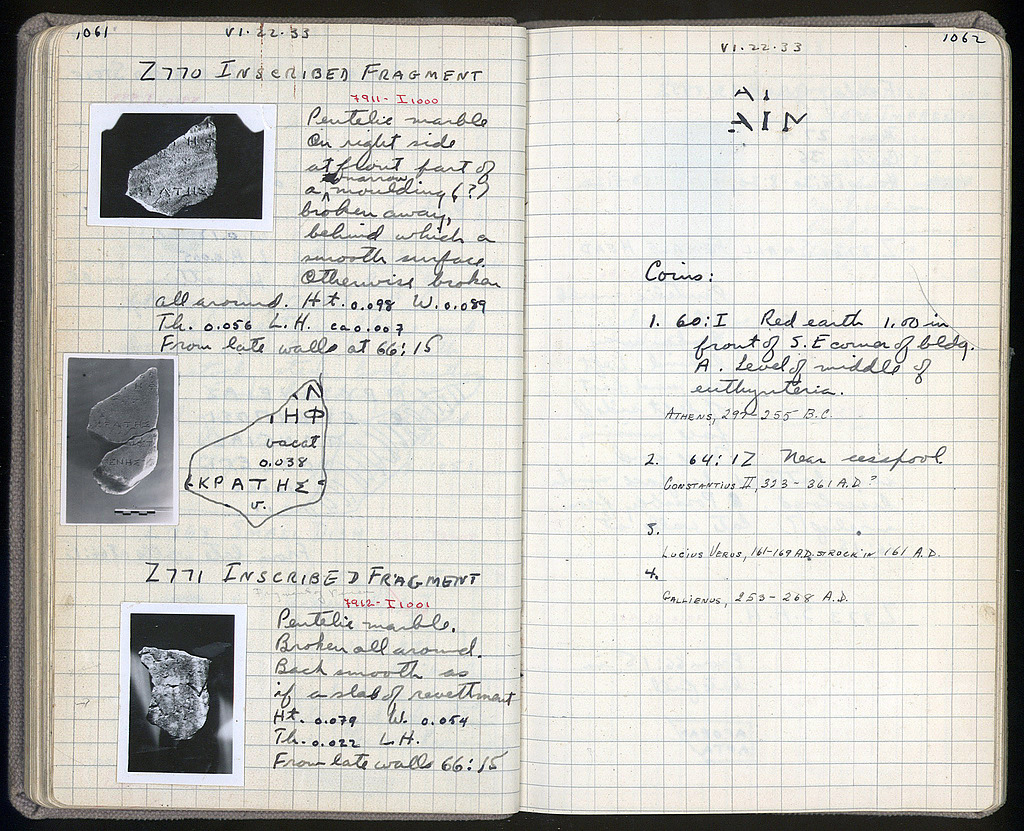 1061
VI·22·33
Z770 INSCRIBED FRAGMENT
7911- I 1000
Pentelic marble
On right side
at front part of
a narrow moulding (?)
broken away,
behind which a
smooth surface.
Otherwise broken
all around. Ht. 0.098 W. 0.089
Th. 0.056 L.H. ca 0.007
From late walls at 66:15
ΚΡΑΤΗΣ
ΕΝΗΣ
ΗΦ
vacat
0.038
ΚΡΑΤΗΣ
v.
Z771 INSCRIBED FRAGMENT
7912- I 1001
Pentelic marble.
Broken all around.
Back smooth as
if a slab of revettment
Ht. 0.079 W. 0.054
Th. 0.022 L.H.
From late walls 66:15
1062
VI·22·33
Coins:
1. 60:I Red earth 1.00 in
front of S.E corner of bldg.
A. Level of middle of
euthynteria.
ATHENS, 297-255 B.C.
2. 64:IZ Near cesspool.
CONSTANTIUS II, 323-361 A.D?
3.
LUCIUS VERUS, 161-169 A.D. STRUCK IN 161 A.D.
4.
GALLIENUS, 253-268 A.D.